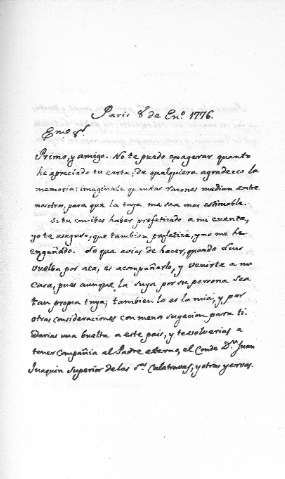 Paris 8 de En.º 1776.
Exmo Sr.
Primo, y amigo. No te puedo exagerar quanto
he apreciado tu carta, de qualquiera agradezco la
memoria: imaginate quantas razones median entre
nosotros, para que la tuya me sea mas estimable.
Si tu confitas haber profetizado a mi cuenta,
yo te aseguro, que tambien profetice, y no me he
engañado. Lo que avias de hacer, quando Luis
vuelba por acá, es acompañarlo, y venirte a mi
casa, pues aunque la suya por su persona sea
tan propia tuya; tambien lo es la mia, y por
otras consideraciones con menos sugecion para ti
darias una buelta a este pais, y te volverias a
tener compañia al Padre eterno, el Conde Dn. Juan
Joaquin Superior de las Sras. Calatravas, y otras yervas.